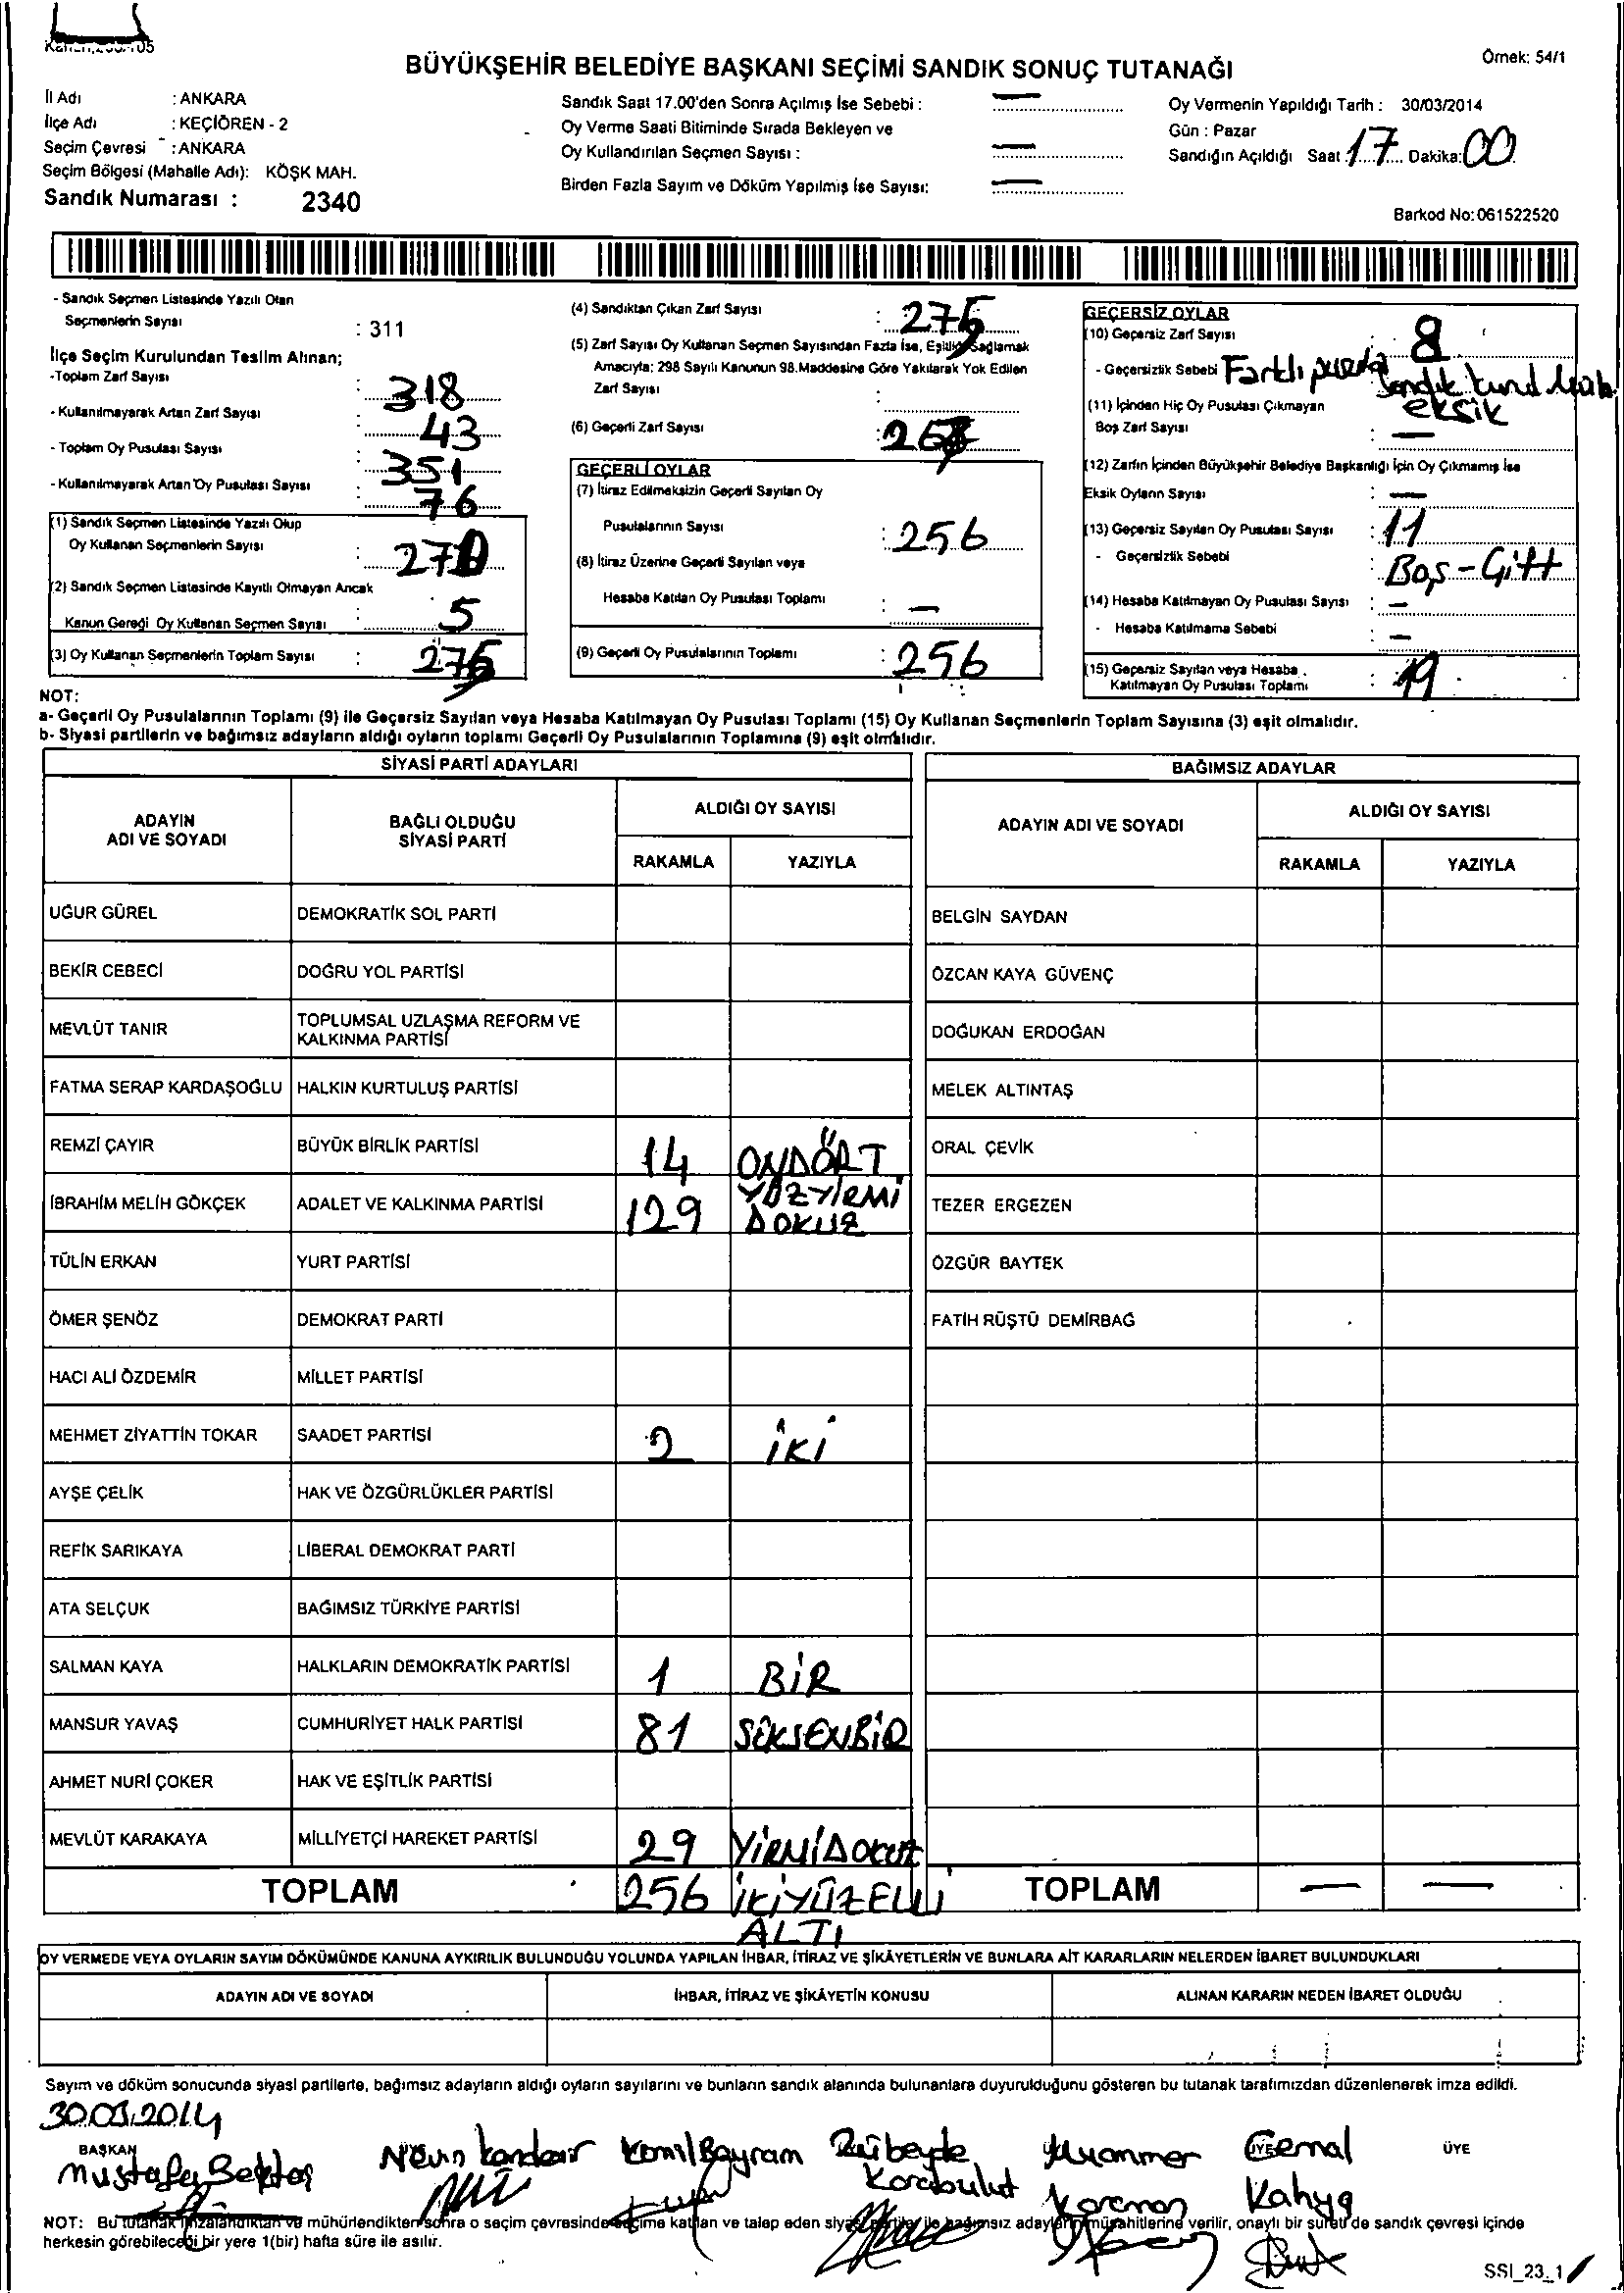 BÜYÜKŞEHİR BELEDİYE BAŞKANI SEÇİMİ SANDIK SONUÇ TUTANAĞI
Örnek: 54/1
İl Adı : ANKARA
İlçe Adı : KEÇİÖREN - 2
Seçim Çevresi : ANKARA
Seçim Bölgesi (Mahalle Adı): KÖŞK MAH.
Sandık Numarası : 2340
Sandık Saat 17.00'den Sonra Açılmış İse Sebebi : —
Oy Verme Saati Bitiminde Sırada Bekleyen ve
Oy Kullandırılan Seçmen Sayısı : —
Birden Fazla Sayım ve Döküm Yapılmış İse Sayısı: —
Oy Vermenin Yapıldığı Tarih : 30/03/2014
Gün : Pazar
Sandığın Açıldığı Saat: 17 Dakika: 00
Barkod No: 061522520
- Sandık Seçmen Listesinde Yazılı Olan
Seçmenlerin Sayısı : 311
İlçe Seçim Kurulundan Teslim Alınan;
-Toplam Zarf Sayısı : 318
- Kullanılmayarak Artan Zarf Sayısı : 43
- Toplam Oy Pusulası Sayısı : 351
- Kullanılmayarak Artan Oy Pusulası Sayısı : 76
(1) Sandık Seçmen Listesinde Yazılı Olup
Oy Kullanan Seçmenlerin Sayısı : 270
(2) Sandık Seçmen Listesinde Kayıtlı Olmayan Ancak
Kanun Gereği Oy Kullanan Seçmen Sayısı : 5
(3) Oy Kullanan Seçmenlerin Toplam Sayısı : 275
(4) Sandıktan Çıkan Zarf Sayısı : 275
(5) Zarf Sayısı Oy Kullanan Seçmen Sayısından Fazla İse, Eşitliği Sağlamak
Amacıyla; 298 Sayılı Kanunun 98.Maddesine Göre Yakılarak Yok Edilen
Zarf Sayısı :
(6) Geçerli Zarf Sayısı :
GEÇERLİ OYLAR
(7) İtiraz Edilmeksizin Geçerli Sayılan Oy
Pusulalarının Sayısı : 256
(8) İtiraz Üzerine Geçerli Sayılan veya
Hesaba Katılan Oy Pusulası Toplamı : —
(9) Geçerli Oy Pusulalarının Toplamı : 256
GEÇERSİZ OYLAR
(10) Geçersiz Zarf Sayısı : 8
- Geçersizlik Sebebi Farklı pusula sandık kurul
eksik
(11) İçinden Hiç Oy Pusulası Çıkmayan
Boş Zarf Sayısı : —
(12) Zarfın İçinden Büyükşehir Belediye Başkanlığı İçin Oy Çıkmamış İse
Eksik Oyların Sayısı : —
(13) Geçersiz Sayılan Oy Pusulası Sayısı : 11
- Geçersizlik Sebebi : Boş - Çift
(14) Hesaba Katılmayan Oy Pusulası Sayısı : —
- Hesaba Katılmama Sebebi : —
(15) Geçersiz Sayılan veya Hesaba
Katılmayan Oy Pusulası Toplamı : 19
NOT:
a- Geçerli Oy Pusulalarının Toplamı (9) ile Geçersiz Sayılan veya Hesaba Katılmayan Oy Pusulası Toplamı (15) Oy Kullanan Seçmenlerin Toplam Sayısına (3) eşit olmalıdır.
b- Siyasi partilerin ve bağımsız adayların aldığı oyların toplamı Geçerli Oy Pusulalarının Toplamına (9) eşit olmalıdır.
SİYASİ PARTİ ADAYLARI
ADAYIN ADI VE SOYADI
BAĞLI OLDUĞU SİYASİ PARTİ
ALDIĞI OY SAYISI
RAKAMLA YAZIYLA
UĞUR GÜREL DEMOKRATİK SOL PARTİ
BEKİR CEBECİ DOĞRU YOL PARTİSİ
MEVLÜT TANIR TOPLUMSAL UZLAŞMA REFORM VE KALKINMA PARTİSİ
FATMA SERAP KARDAŞOĞLU HALKIN KURTULUŞ PARTİSİ
REMZİ ÇAYIR BÜYÜK BİRLİK PARTİSİ 14 ONDÖRT
İBRAHİM MELİH GÖKÇEK ADALET VE KALKINMA PARTİSİ 129 YÜZYİRMİ DOKUZ
TÜLİN ERKAN YURT PARTİSİ
ÖMER ŞENÖZ DEMOKRAT PARTİ
HACI ALİ ÖZDEMİR MİLLET PARTİSİ
MEHMET ZİYATTİN TOKAR SAADET PARTİSİ 2 İKİ
AYŞE ÇELİK HAK VE ÖZGÜRLÜKLER PARTİSİ
REFİK SARIKAYA LİBERAL DEMOKRAT PARTİ
ATA SELÇUK BAĞIMSIZ TÜRKİYE PARTİSİ
SALMAN KAYA HALKLARIN DEMOKRATİK PARTİSİ 1 BİR
MANSUR YAVAŞ CUMHURİYET HALK PARTİSİ 81 SEKSENBİR
AHMET NURİ ÇOKER HAK VE EŞİTLİK PARTİSİ
MEVLÜT KARAKAYA MİLLİYETÇİ HAREKET PARTİSİ 29 YİRMİDOKUZ
TOPLAM 256 İKİYÜZELLİ ALTI
BAĞIMSIZ ADAYLAR
ADAYIN ADI VE SOYADI
ALDIĞI OY SAYISI
RAKAMLA YAZIYLA
BELGİN SAYDAN
ÖZCAN KAYA GÜVENÇ
DOĞUKAN ERDOĞAN
MELEK ALTINTAŞ
ORAL ÇEVİK
TEZER ERGEZEN
ÖZGÜR BAYTEK
FATİH RÜŞTÜ DEMİRBAĞ
TOPLAM — —
OY VERMEDE VEYA OYLARIN SAYIM DÖKÜMÜNDE KANUNA AYKIRILIK BULUNDUĞU YOLUNDA YAPILAN İHBAR, İTİRAZ VE ŞİKÂYETLERİN VE BUNLARA AİT KARARLARIN NELERDEN İBARET BULUNDUKLARI
ADAYIN ADI VE SOYADI
İHBAR, İTİRAZ VE ŞİKÂYETİN KONUSU
ALINAN KARARIN NEDEN İBARET OLDUĞU
Sayım ve döküm sonucunda siyasi partilerle, bağımsız adayların aldığı oyların sayılarını ve bunların sandık alanında bulunanlara duyurulduğunu gösteren bu tutanak tarafımızdan düzenlenerek imza edildi.
30.03.2014
BAŞKAN ÜYE ÜYE
Mustafa Bektaş
Nevin Kandemir
Kamil Bayram
Zübeyde Karabulut
Muammer Karaman
Cemal Kahya
NOT: Bu tutanak imzalandıktan ve mühürlendikten sonra o seçim çevresinde seçime katılan ve talep eden siyasi partiler ile bağımsız adayların müşahitlerine verilir, onaylı bir sureti de sandık çevresi içinde
herkesin görebileceği bir yere 1(bir) hafta süre ile asılır.
SSI_23_1